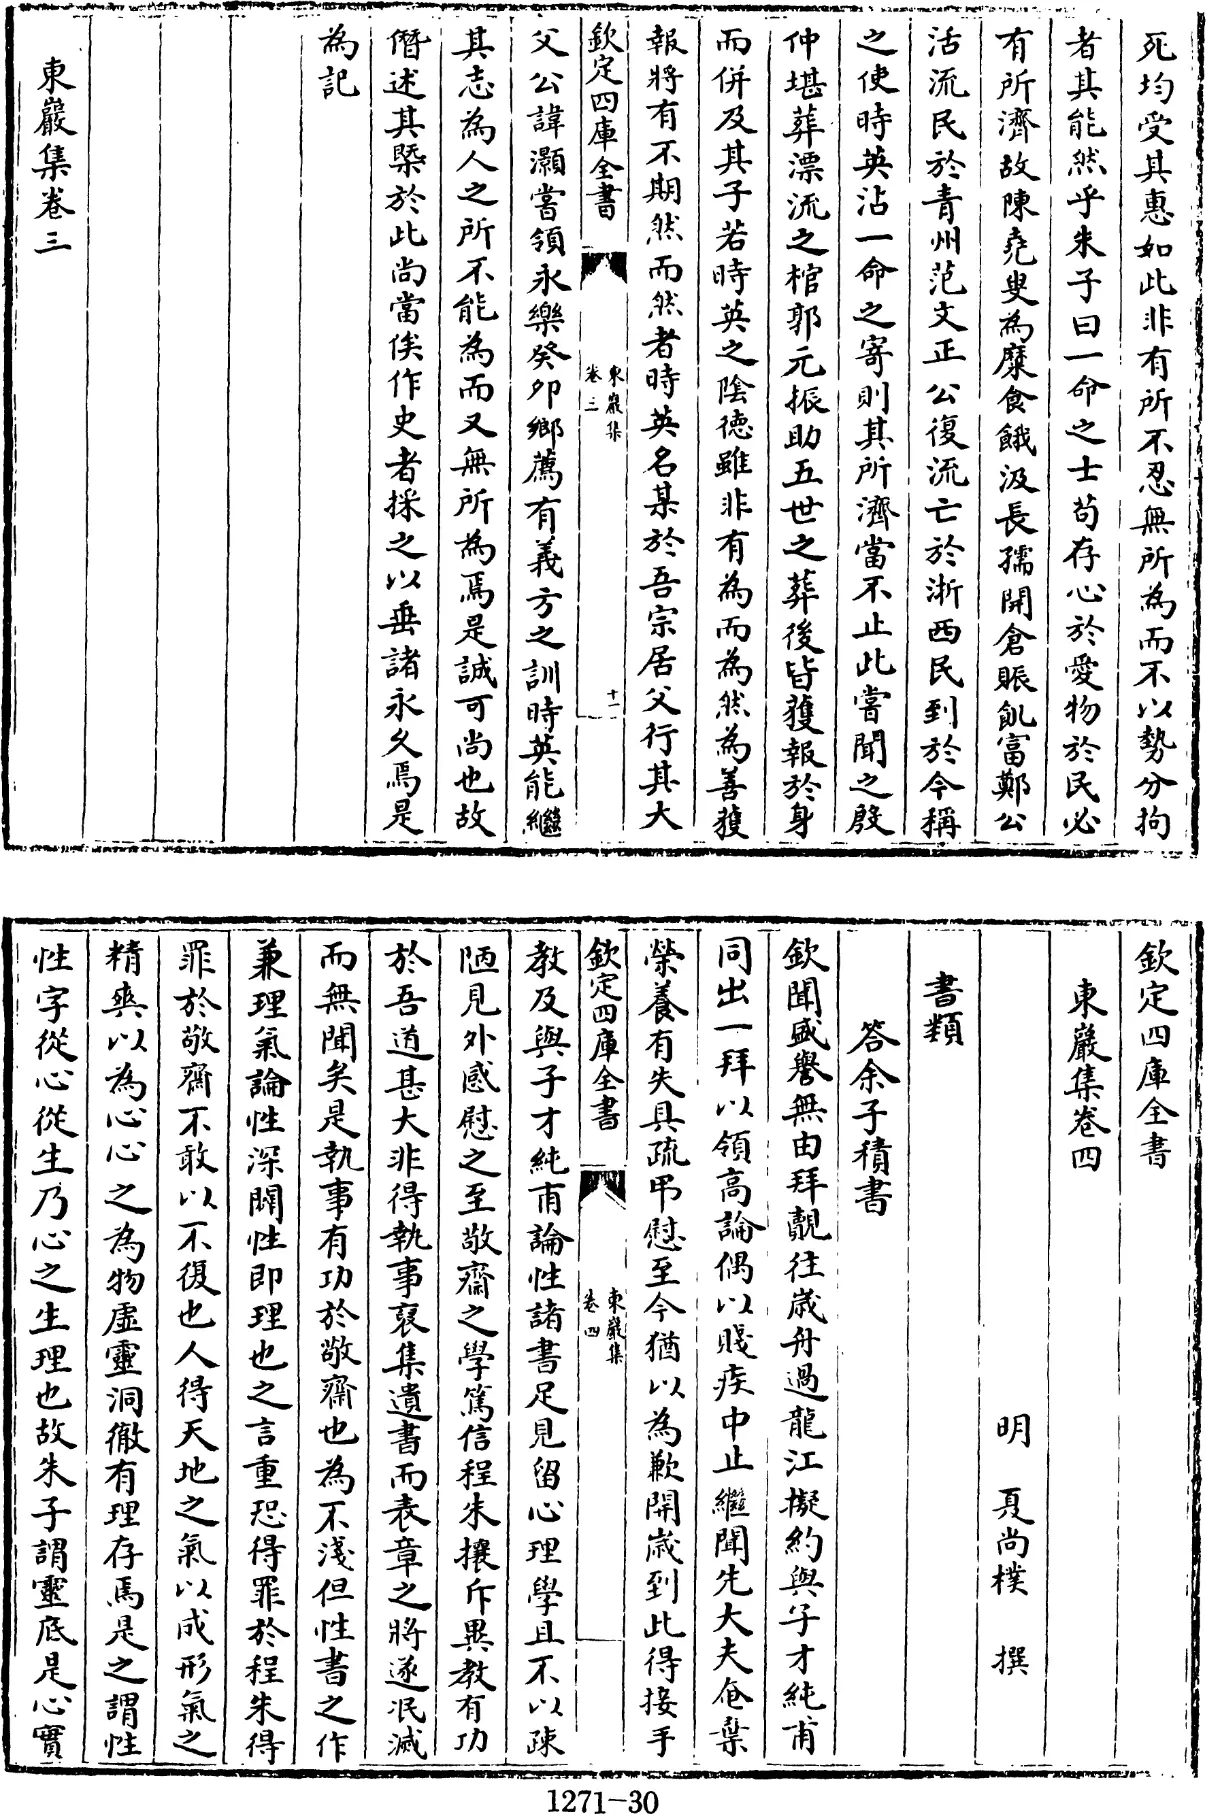 死均受其惠如此非有所不忍無所為而不以勢分拘
者其能然乎朱子曰一命之士苟存心於愛物於民必
有所濟故陳堯叟為糜食餓汲長孺開倉賑飢富鄭公
活流民於青州范文正公復流亡於浙西民到於今稱
之使時英沾一命之寄則其所濟當不止此嘗聞之殷
仲堪葬漂流之棺郭元振助五世之葬後皆獲報於身
而併及其子若時英之陰德雖非有為而為然為善獲
報將有不期然而然者時英名某於吾宗居父行其大
欽定四庫全書
東巖集
卷三
十一
父公諱灝嘗領永樂癸卯鄉薦有義方之訓時英能繼
其志為人之所不能為而又無所為焉是誠可尚也故
僭述其槩於此尚當俟作史者採之以垂諸永久焉是
為記
東巖集卷三
欽定四庫全書
東巖集卷四
明 夏尚樸 撰
書類
答余子積書
欽聞盛譽無由拜覿往歲舟過龍江擬約與子才純甫
同出一拜以領高論偶以賤疾中止繼聞先大夫奄棄
榮養有失具疏弔慰至今猶以為歉開歲到此得接手
欽定四庫全書
東巖集
卷四
教及與子才純甫論性諸書足見留心理學且不以疎
陋見外感慰之至敬齋之學篤信程朱攘斥異教有功
於吾道甚大非得執事裒集遺書而表章之將遂泯滅
而無聞矣是執事有功於敬齋也為不淺但性書之作
兼理氣論性深闢性即理也之言重恐得罪於程朱得
罪於敬齋不敢以不復也人得天地之氣以成形氣之
精爽以為心心之為物虛靈洞徹有理存焉是之謂性
性字從心從生乃心之生理也故朱子謂靈底是心實
1271-30